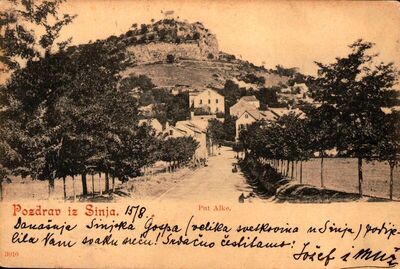 Pozdrav iz Sinja. 15/8
Put Alke.
Današnja Sinjska Gospa (velika svetkovina u Sinju) podije-
lila Vam svaku sreću! Srdačno čestitamo:
Josef i
3010